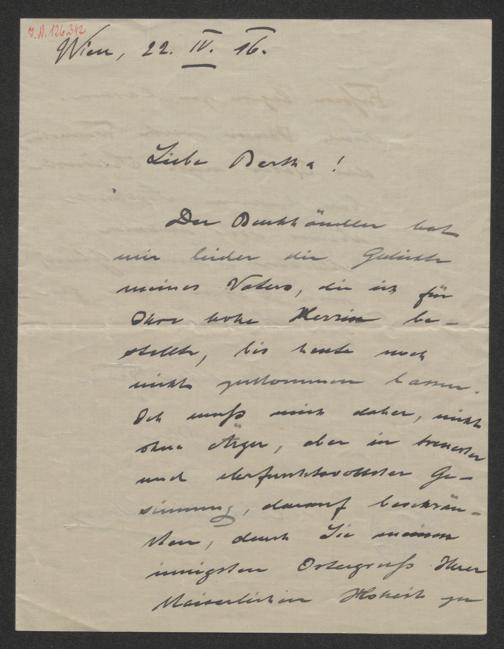 J.N. 126.312
Wien, 22. IV. 16.
Liebe Bertha!
Der Buchhändler hat
mir leider die Gedichte
meines Vaters, die ich für
Ihre hohe Herrin be-
stellte, bis heute noch
nicht zukommen lassen.
Ich muß mich daher, nicht
ohne Ärger, aber in treuester
und ehrfurchtsvollster Ge-
sinnung, darauf beschrän-
ken, durch Sie meinen
innigsten Ostergruß Ihrer
Kaiserlichen Hoheit zu